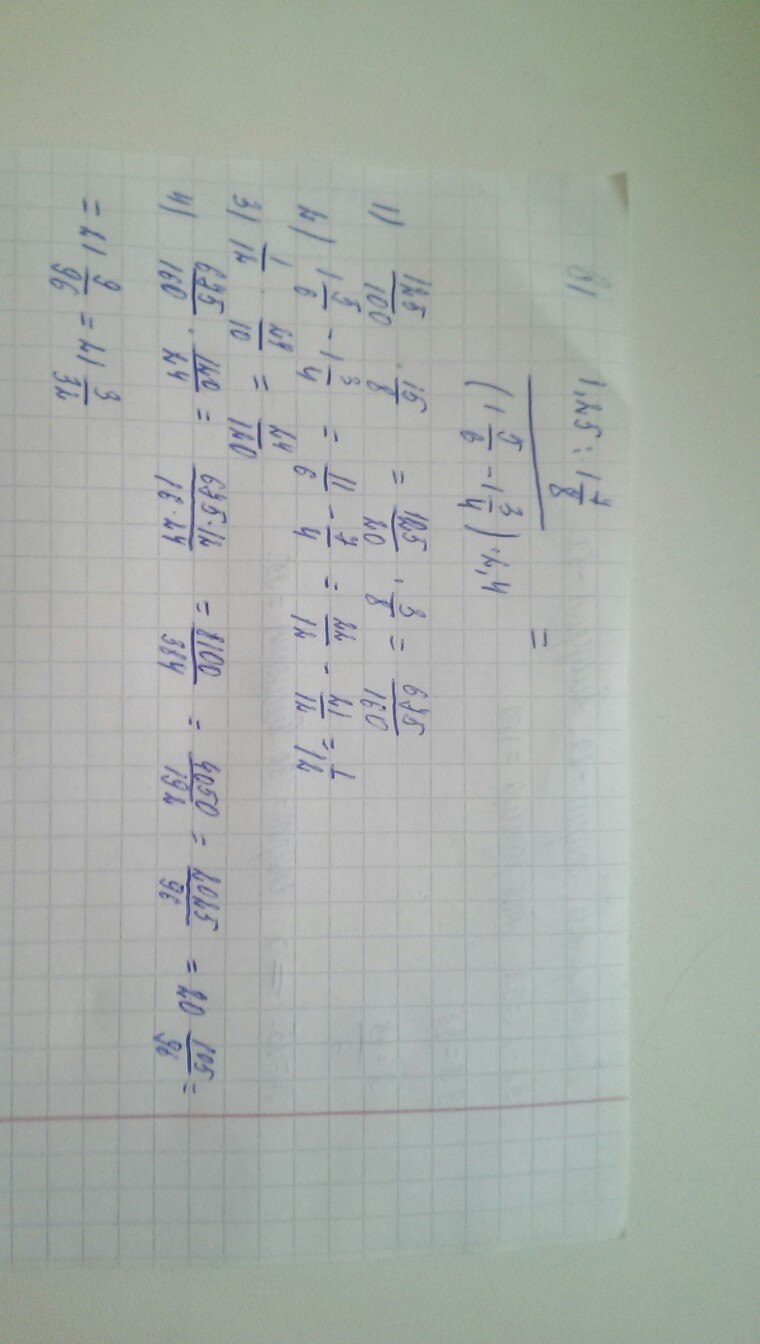 б) 1,25 : 1 7/8 / (1 5/6 - 1 3/4) · 2,4 =
1) 125/100 · 15/8 = 125/20 · 3/8 = 675/160
2) 1 5/6 - 1 3/4 = 11/6 - 7/4 = 22/12 - 21/12 = 1/12
3) 1/12 · 24/10 = 24/120
4) 675/160 · 120/24 = 675·12/16·24 = 8100/384 = 4050/192 = 2025/96 = 20 105/96 =
= 21 9/96 = 21 3/32